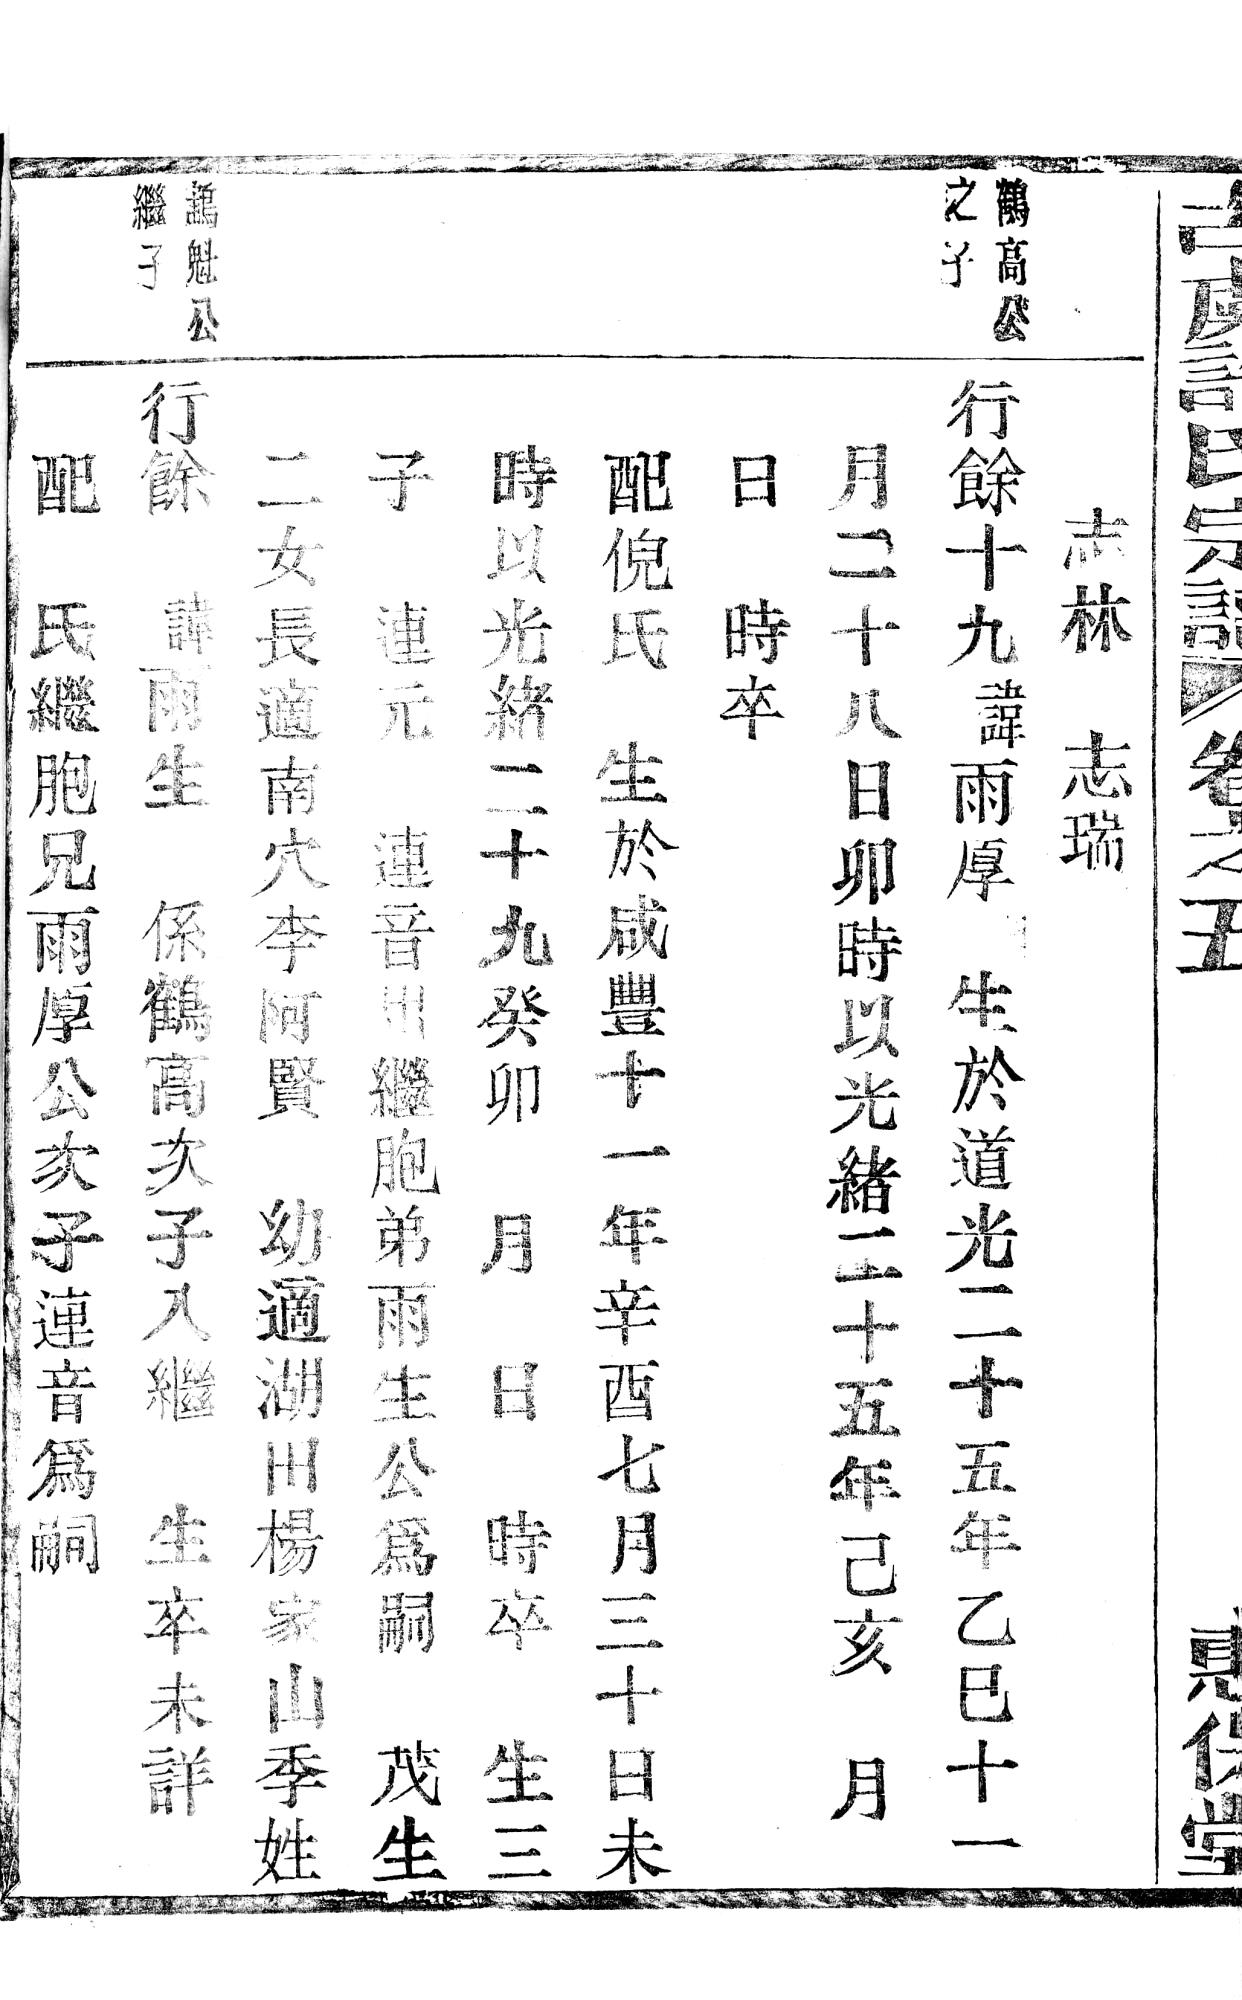 古虞許氏宗譜 卷之五 惠保堂
志林 志瑞
鶴高公
之子
行餘十九諱雨厚 生於道光二十五年乙巳十一
月二十八日卯時以光緒二十五年己亥 月
日 時卒
配倪氏 生於咸豐十一年辛酉七月三十日未
時以光緒二十九癸卯 月 日 時卒 生三
子 連元 連音出繼胞弟雨生公為嗣 茂生
二女長適南穴李阿賢 幼適湖田楊家山季姓
鶴魁公
繼子
行餘 諱雨生 係鶴高次子入繼 生卒未詳
配 氏繼胞兄雨厚公次子連音為嗣